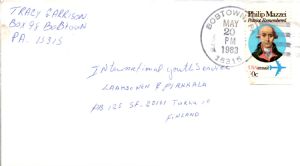 Tracy Garrison
Box 98 Bobtown
PA. 15315
BOBTOWN
MAY
20
PM
1983
15315
Philip Mazzei
Patriot Remembered
USAirmail
40c
International youth Service
PB 125 SF. 20101 Turku 10
Finland